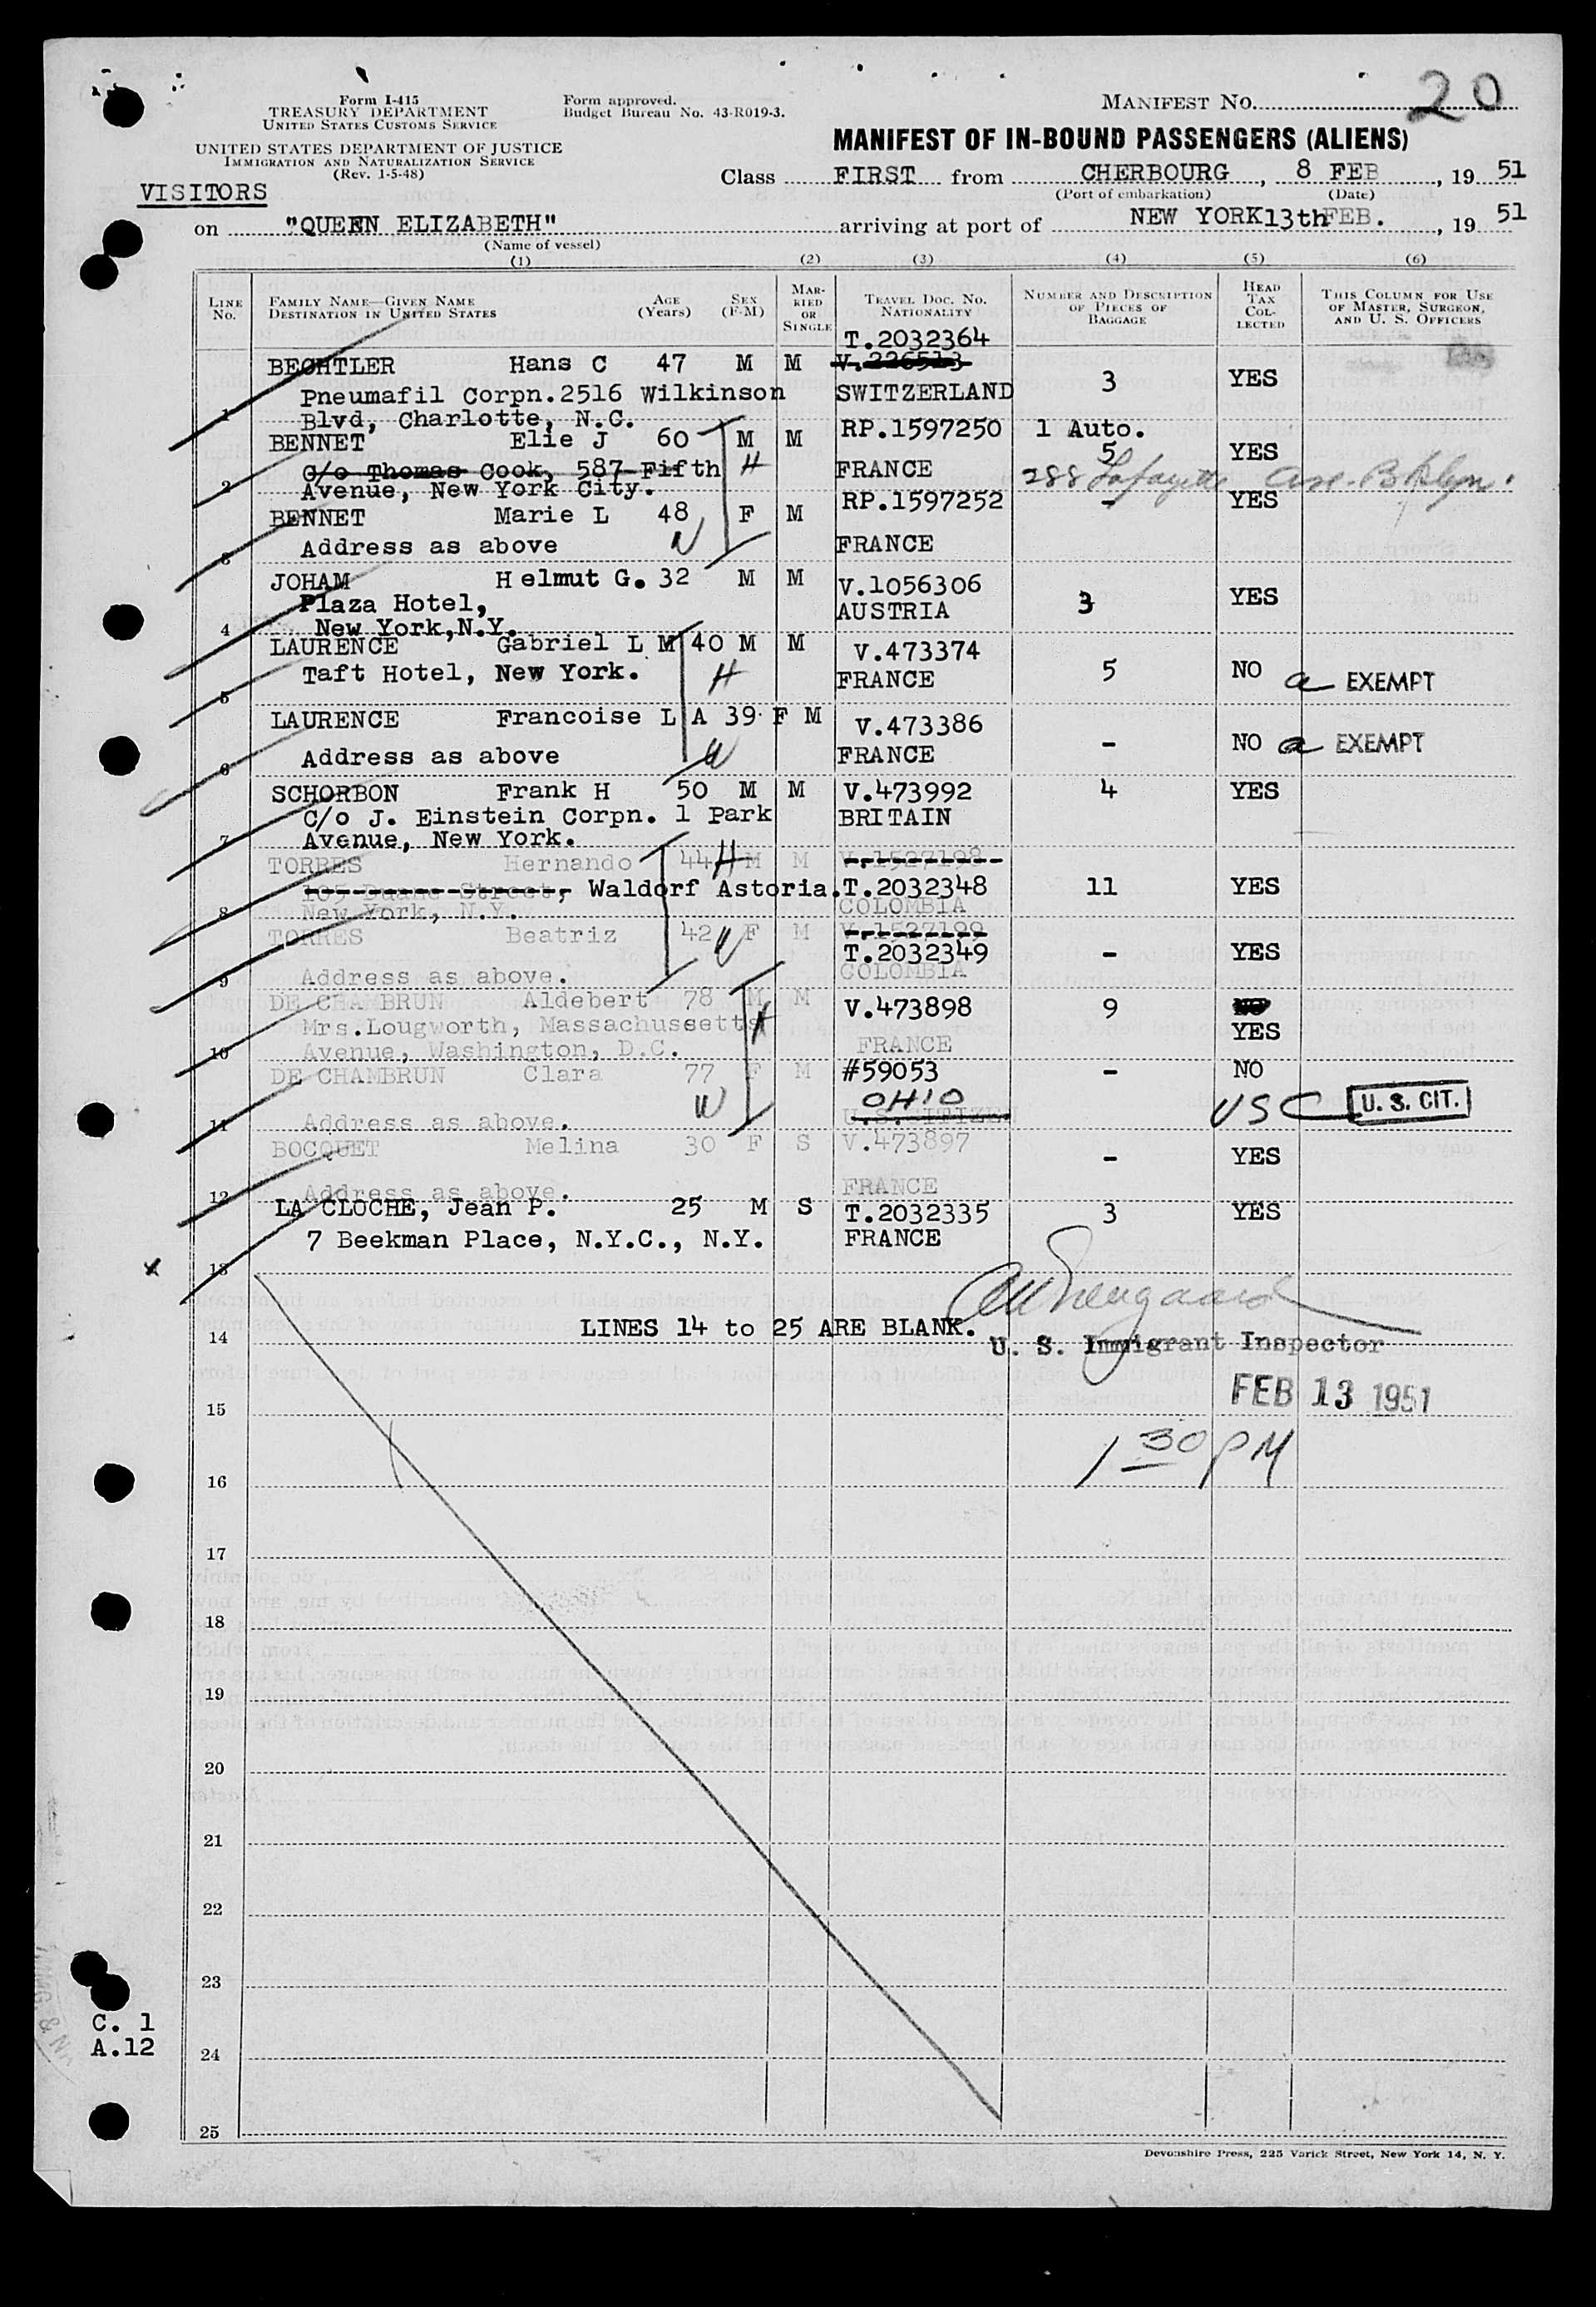 Form I-415
TREASURY DEPARTMENT
UNITED STATES CUSTOMS SERVICE
UNITED STATES DEPARTMENT OF JUSTICE
IMMIGRATION AND NATURALIZATION SERVICE
(Rev. 1-5-48)
Form approved.
Budget Bureau No. 43-R019-3.
MANIFEST NO. 20
MANIFEST OF IN-BOUND PASSENGERS (ALIENS)
VISITORS
Class FIRST from CHERBOURG, 8 FEB, 19 51
(Port of embarkation) (Date)
on "QUEEN ELIZABETH" arriving at port of NEW YORK 13th FEB., 19 51
(Name of vessel)
(1) (2) (3) (4) (5) (6)
LINE No.
FAMILY NAME—GIVEN NAME
DESTINATION IN UNITED STATES
AGE (Years)
SEX (F-M)
MARRIED OR SINGLE
TRAVEL DOC. NO. NATIONALITY
NUMBER AND DESCRIPTION OF PIECES OF BAGGAGE
HEAD TAX COLLECTED
THIS COLUMN FOR USE OF MASTER, SURGEON, AND U. S. OFFICERS
T.2032364
BECHTLER Hans C 47 M M V.226513 YES
Pneumafil Corpn. 2516 Wilkinson SWITZERLAND 3
1 Blvd, Charlotte, N.C.
BENNET Elie J 60 M M RP.1597250 1 Auto. YES
C/o Thomas Cook, 587 Fifth H FRANCE 5
288 Lafayette Ave. Bklyn.
2 Avenue, New York City.
BENNET Marie L 48 F M RP.1597252 - YES
3 Address as above W FRANCE
JOHAM Helmut G. 32 M M V.1056306 3 YES
Plaza Hotel, AUSTRIA
4 New York, N.Y.
LAURENCE Gabriel L M 40 M M V.473374 5 NO
5 Taft Hotel, New York. H FRANCE a EXEMPT
LAURENCE Francoise L A 39 F M V.473386 - NO a EXEMPT
6 Address as above W FRANCE
SCHORBON Frank H 50 M M V.473992 4 YES
C/o J. Einstein Corpn. 1 Park BRITAIN
7 Avenue, New York.
TORRES Hernando 44 H M M V.1527198
105 Duane Street, Waldorf Astoria. T.2032348 11 YES
8 New York, N.Y. COLOMBIA
TORRES Beatriz 42 W F M V.1527199
T.2032349 - YES
9 Address as above. COLOMBIA
DE CHAMBRUN Aldebert 78 M M V.473898 9 NO
Mrs.Lougworth, Massachussetts H YES
10 Avenue, Washington, D.C. FRANCE
DE CHAMBRUN Clara 77 F M #59053 - NO
W OHIO USC U. S. CIT.
11 Address as above. U.S.CITIZEN
BOCQUET Melina 30 F S V.473897 - YES
12 Address as above. FRANCE
LA CLOCHE, Jean P. 25 M S T.2032335 3 YES
7 Beekman Place, N.Y.C., N.Y. FRANCE
x 13
14 LINES 14 to 25 ARE BLANK.
U. S. Immigrant Inspector
FEB 13 1951
15
1 30 PM
16
17
18
19
20
21
22
23
C. 1
A.12
24
25
Devonshire Press, 225 Varick Street, New York 14, N. Y.